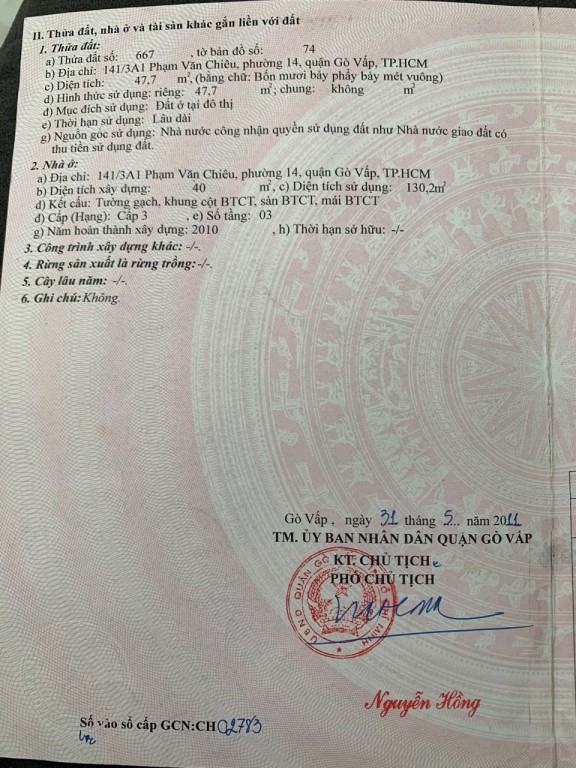 II. Thửa đất, nhà ở và tài sản khác gắn liền với đất
1. Thửa đất:
a) Thửa đất số: 667 , tờ bản đồ số: 74
b) Địa chỉ: 141/3A1 Phạm Văn Chiêu, phường 14, quận Gò Vấp, TP.HCM
c) Diện tích: 47,7 m², (bằng chữ: Bốn mươi bảy phẩy bảy mét vuông)
d) Hình thức sử dụng: riêng: 47,7 m²; chung: không m²
đ) Mục đích sử dụng: Đất ở tại đô thị
e) Thời hạn sử dụng: Lâu dài
g) Nguồn gốc sử dụng: Nhà nước công nhận quyền sử dụng đất như Nhà nước giao đất có
thu tiền sử dụng đất.
2. Nhà ở:
a) Địa chỉ: 141/3A1 Phạm Văn Chiêu, phường 14, quận Gò Vấp, TP.HCM
b) Diện tích xây dựng: 40 m², c) Diện tích sử dụng: 130,2m²
d) Kết cấu: Tường gạch, khung cột BTCT, sàn BTCT, mái BTCT
đ) Cấp (Hạng): Cấp 3 , e) Số tầng: 03
g) Năm hoàn thành xây dựng: 2010 , h) Thời hạn sở hữu: -/-
3. Công trình xây dựng khác: -/-.
4. Rừng sản xuất là rừng trồng: -/-.
5. Cây lâu năm: -/-.
6. Ghi chú: Không.
Gò Vấp , ngày 31 tháng 5.. năm 2011
TM. ỦY BAN NHÂN DÂN QUẬN GÒ VẤP
KT. CHỦ TỊCH
PHÓ CHỦ TỊCH
Nguyễn Hồng
Số vào sổ cấp GCN:CH 02783